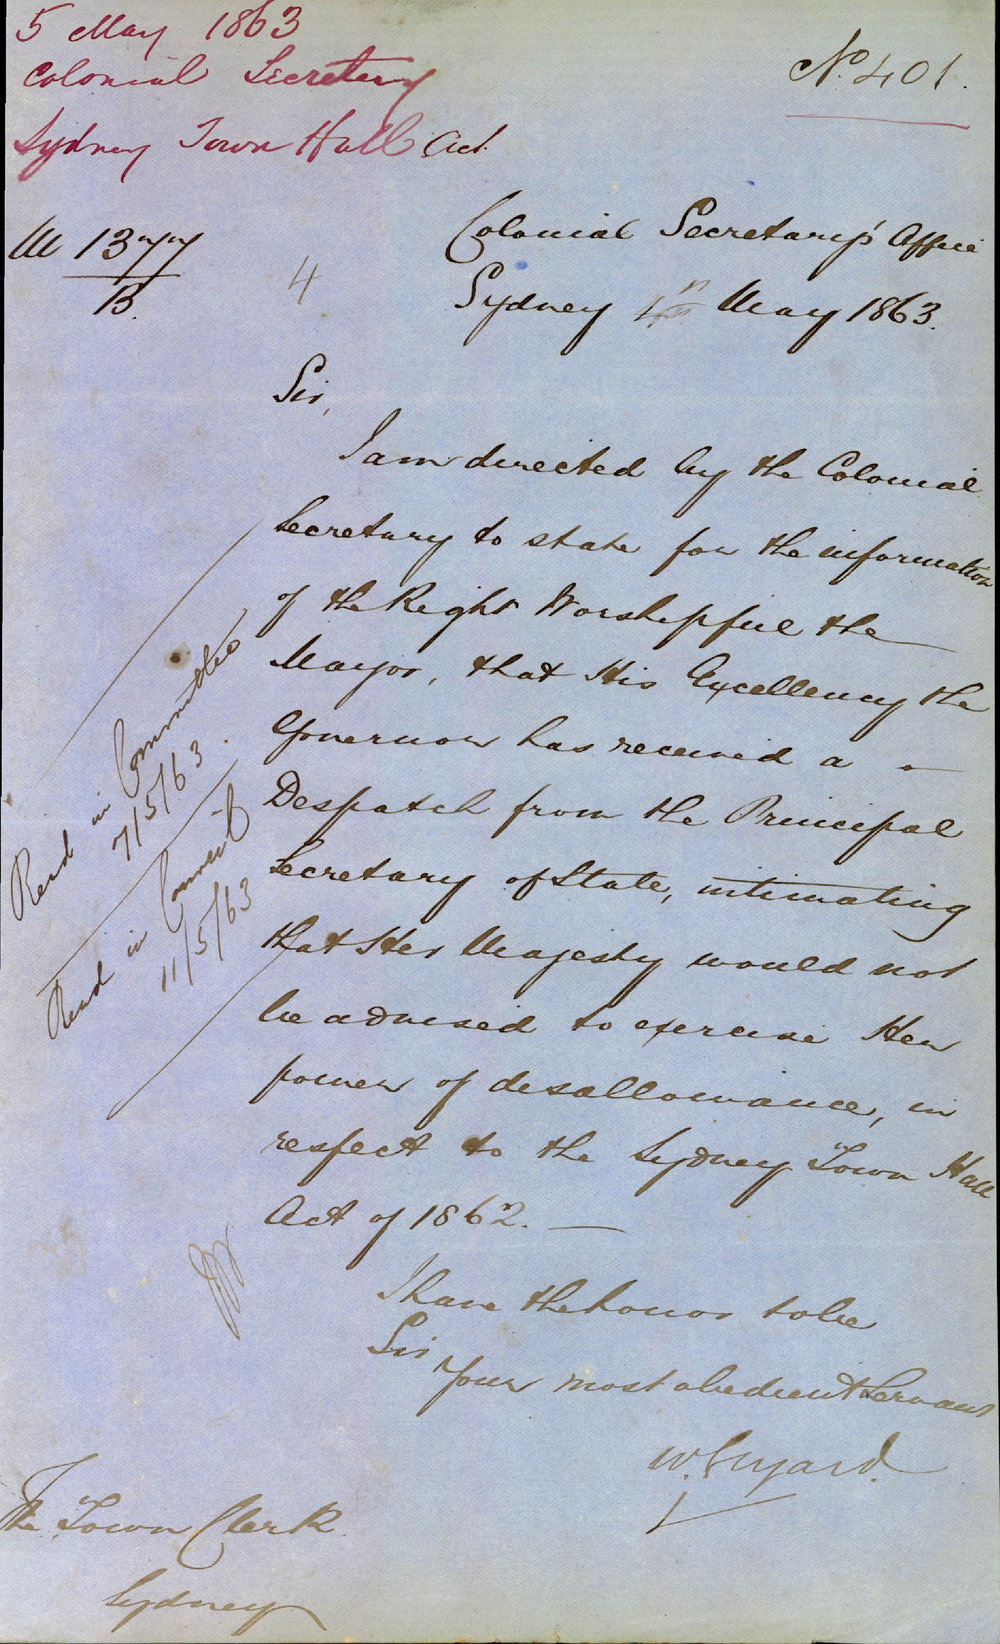 5 May 1863
Colonial Secretary
Sydney Town Hall Act.
No. 401.
M 1377
B.
4
Colonial Secretary's Office
Sydney 4th May 1863.
Sir,
I am directed by the Colonial
Secretary to state for the information
of the Right Worshipful the
Mayor, that His Excellency the
Governor has received a
Despatch from the Principal
Secretary of State, intimating
that Her Majesty would not
be advised to exercise Her
power of disallowance, in
respect to the Sydney Town Hall
Act of 1862.
Read in Committee
7/5/63.
Read in Council
11/5/63
I have the honor to be
Sir
Your most obedient Servant
The Town Clerk
Sydney